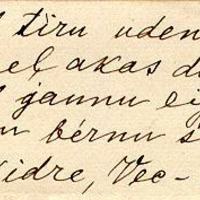 tīru uden
el akas d
jaunu ei
u bérnu s
idre, Vec-